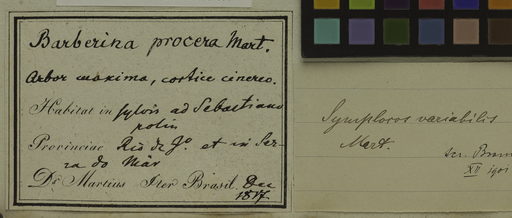 Barberina procera Mart.
Arbor maxima, cortice cinereo.
Habitat in sylvis ad Sebastiano
polin
Provinciae Rio de Jo. et in Ser-
ra do Mar
Dr. Martius Iter Brasil. Dec
1817.
Symplocos variabilis
Mart.
scr. Brand
XII 1901